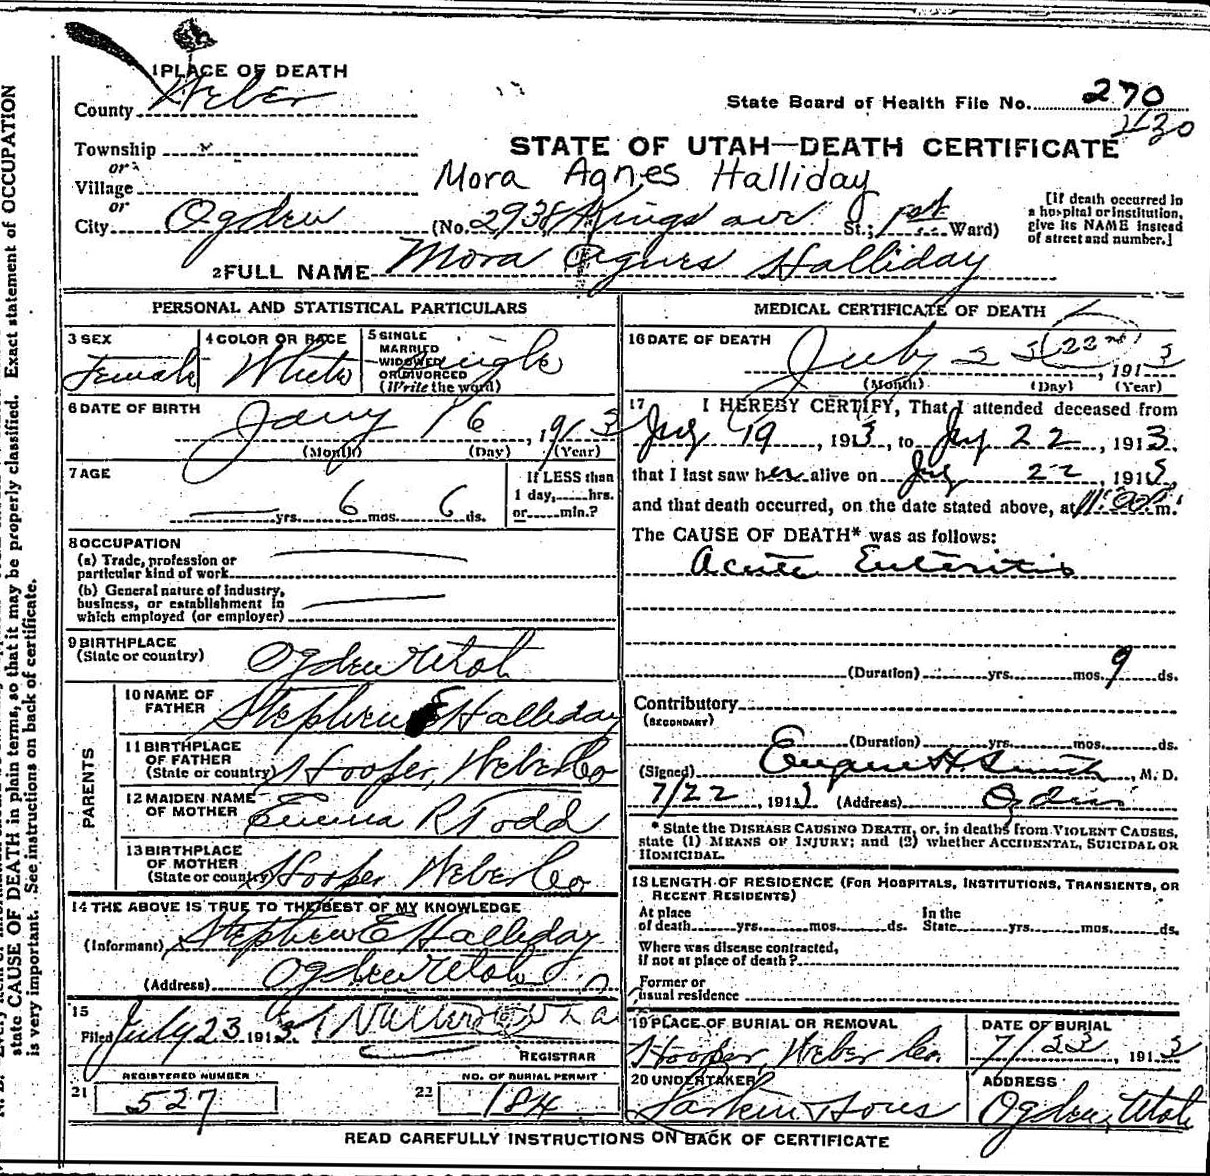 1 PLACE OF DEATH
County Weber
State Board of Health File No. 270
430
Township
or
Village
or
City Ogden
STATE OF UTAH—DEATH CERTIFICATE
Mora Agnes Halliday
(No. 2938 Kings ave St.; 1st Ward)
[If death occurred in a hospital or institution, give its NAME instead of street and number.]
2 FULL NAME Mora Agnes Halliday
PERSONAL AND STATISTICAL PARTICULARS
3 SEX Female
4 COLOR OR RACE White
5 SINGLE MARRIED WIDOWED OR DIVORCED (Write the word) Single
6 DATE OF BIRTH Jany 16, 1913
(Month) (Day) (Year)
7 AGE
— yrs. 6 mos. 6 ds.
If LESS than 1 day, hrs. or min.?
8 OCCUPATION
(a) Trade, profession or particular kind of work
(b) General nature of industry, business, or establishment in which employed (or employer)
9 BIRTHPLACE (State or country) Ogden Utah
PARENTS
10 NAME OF FATHER Stephen E Halliday
11 BIRTHPLACE OF FATHER (State or country) Hooper, Weber Co
12 MAIDEN NAME OF MOTHER Emma R Todd
13 BIRTHPLACE OF MOTHER (State or country) Hooper Weber Co
14 THE ABOVE IS TRUE TO THE BEST OF MY KNOWLEDGE
(Informant) Stephen E Halliday
(Address) Ogden Utah
15
Filed July 23 1913.
REGISTRAR
REGISTERED NUMBER
21 527
NO. OF BURIAL PERMIT
22 184
MEDICAL CERTIFICATE OF DEATH
16 DATE OF DEATH July 22nd, 1913
(Month) (Day) (Year)
17 I HEREBY CERTIFY, That I attended deceased from
July 19, 1913, to July 22, 1913.
that I last saw her alive on July 22, 1913,
and that death occurred, on the date stated above, at m.
The CAUSE OF DEATH* was as follows:
Acute Enteritis
(Duration) yrs. mos. 9 ds.
Contributory (SECONDARY)
(Duration) yrs. mos. ds.
(Signed) Eugene H. Smith, M. D.
7/22, 1913 (Address) Ogden
* State the DISEASE CAUSING DEATH, or, in deaths from VIOLENT CAUSES, state (1) MEANS OF INJURY; and (2) whether ACCIDENTAL, SUICIDAL OR HOMICIDAL.
18 LENGTH OF RESIDENCE (FOR HOSPITALS, INSTITUTIONS, TRANSIENTS, OR RECENT RESIDENTS)
At place of death yrs. mos. ds. In the State yrs. mos. ds.
Where was disease contracted, if not at place of death?
Former or usual residence
19 PLACE OF BURIAL OR REMOVAL Hooper, Weber Co.
DATE OF BURIAL 7/23, 1913
20 UNDERTAKER Larkin & Sons
ADDRESS Ogden, Utah
READ CAREFULLY INSTRUCTIONS ON BACK OF CERTIFICATE
state CAUSE OF DEATH in plain terms, so that it may be properly classified. Exact statement of OCCUPATION
is very important. See instructions on back of certificate.